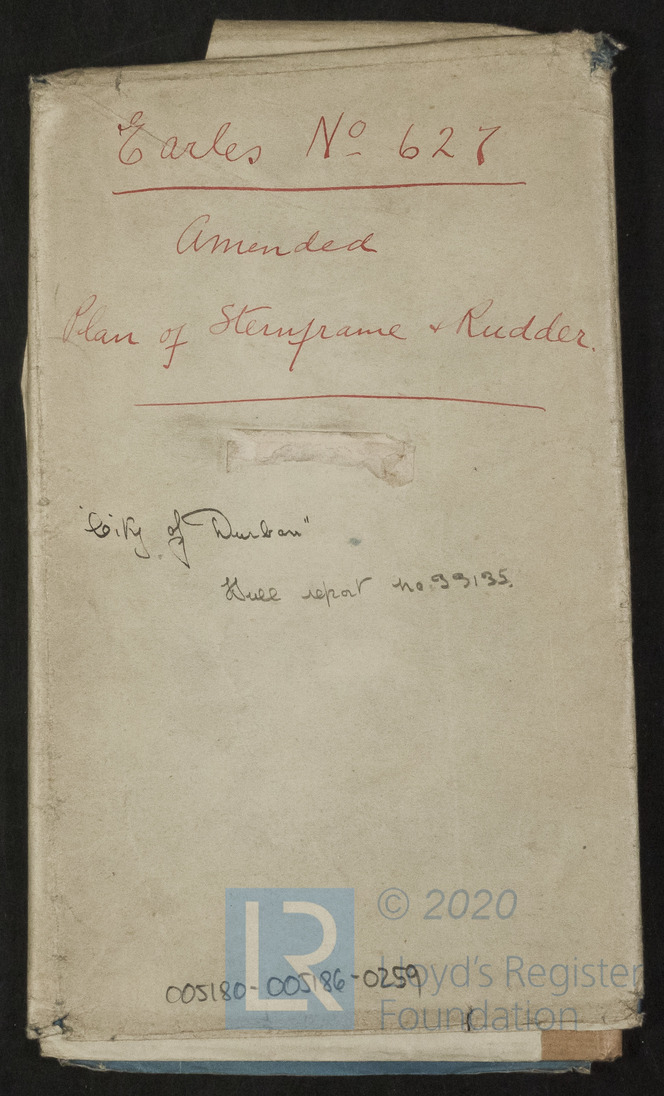 Earles No 627
Amended
Plan of Sternframe & Rudder.
"City of Durban"
Hull report no. 33135.
© 2020
LR
Lloyd's Register
Foundation
005180-005186-0259